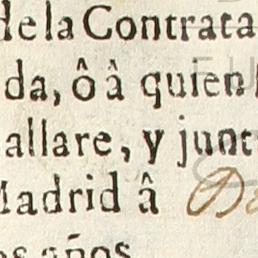 de la Contrata
da, ô â quien
allare, y junt
Madrid â
os años